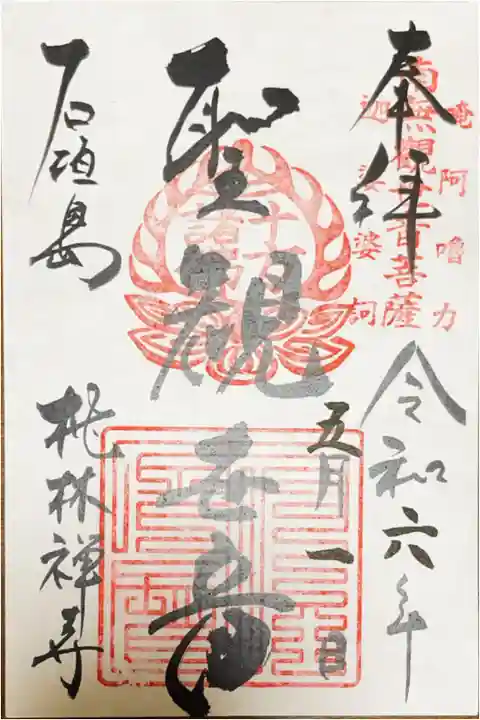 奉拝
南無観世音菩薩
唵阿嚕力
迦娑婆訶
令和六年
五月一日
聖観世音
石垣島
桃林禅寺